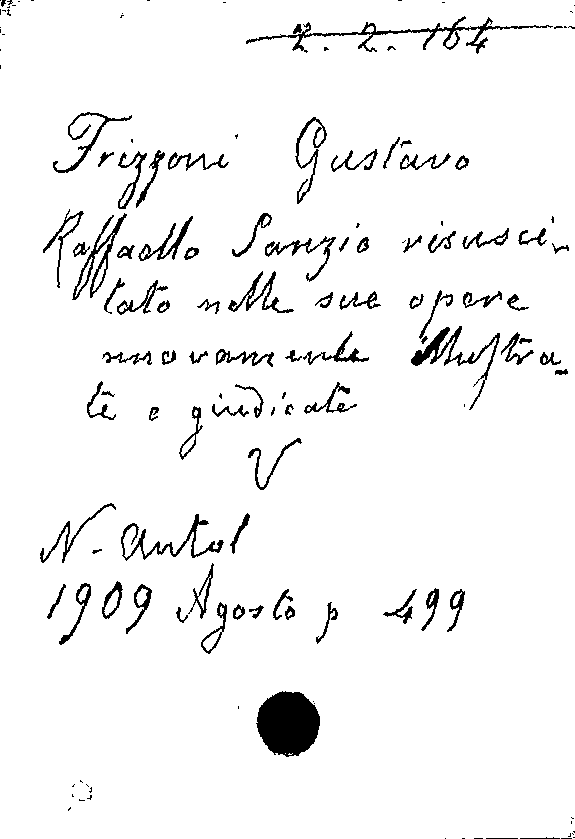 2. 2. 164
Frizzoni Gustavo
Raffaello Sanzio risusci-
tato nelle sue opere
nuovamente illustra-
te e giudicate
V
N. Antol
1909 Agosto p 499